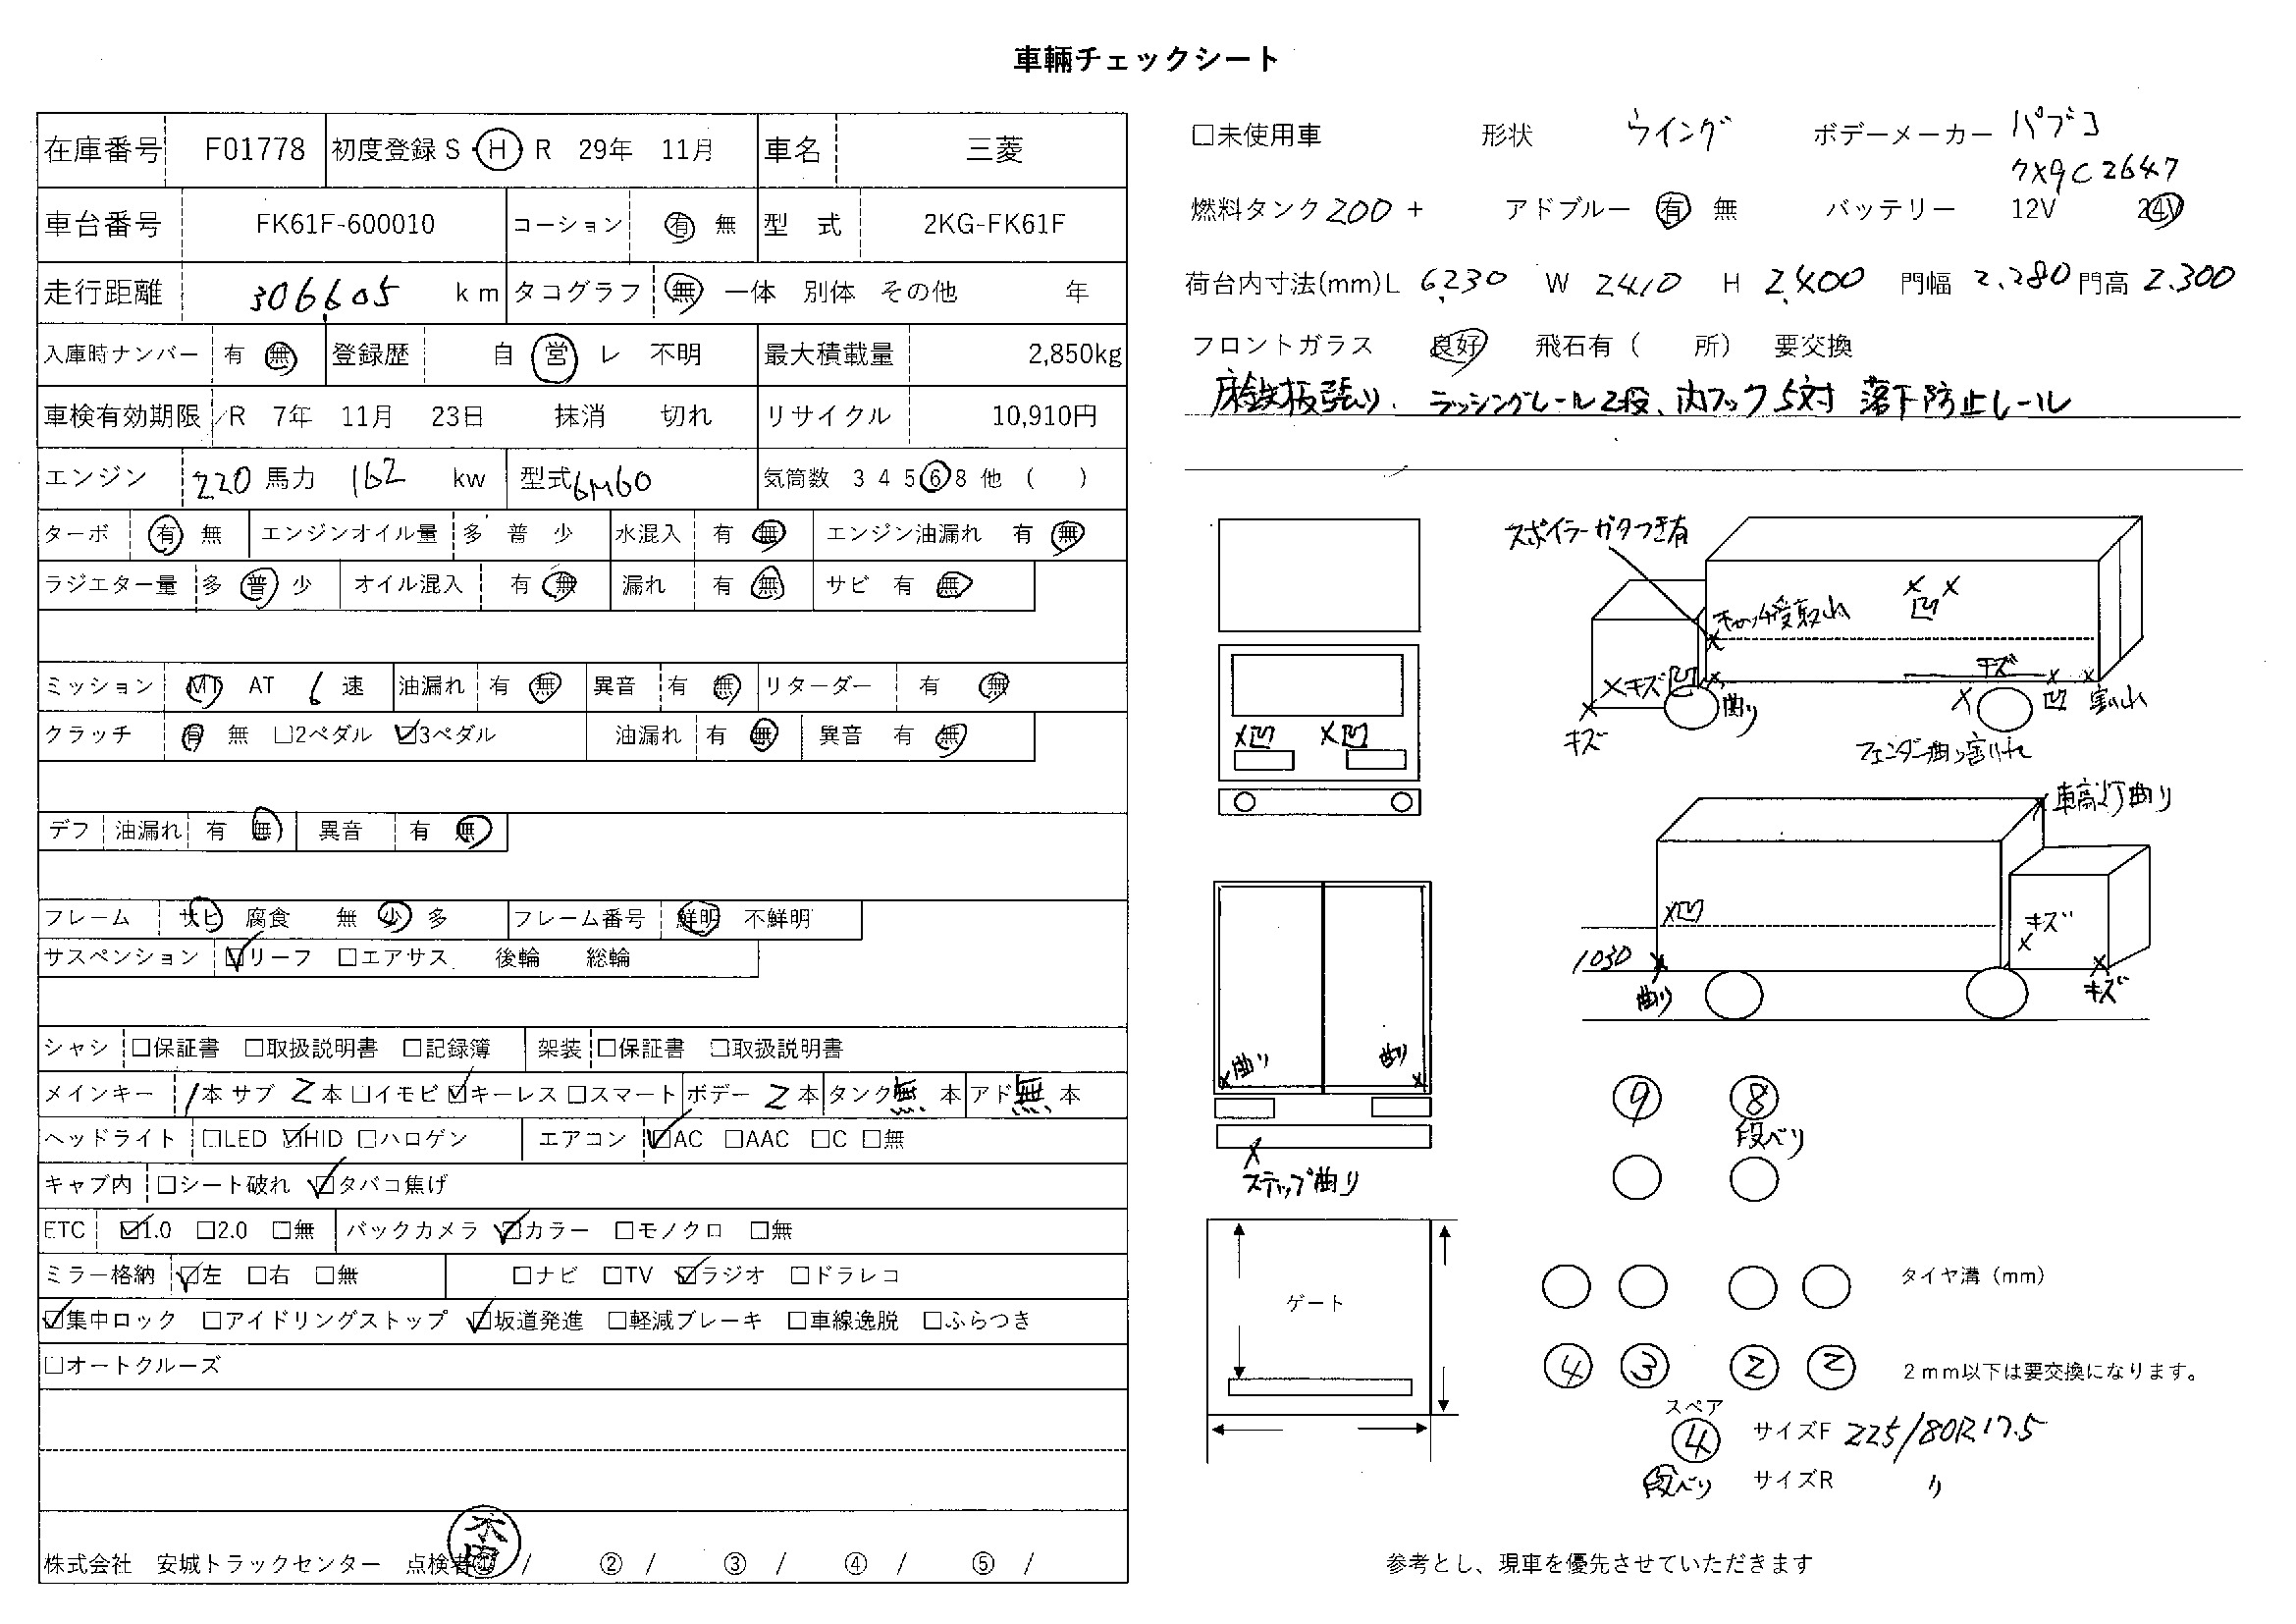 車輛チェックシート
在庫番号 F01778 初度登録 S H R 29年 11月 車名 三菱
車台番号 FK61F-600010 コーション 有 無 型 式 2KG-FK61F
走行距離 306605 km タコグラフ 無 一体 別体 その他 年
入庫時ナンバー 有 無 登録歴 自 営 レ 不明 最大積載量 2,850kg
車検有効期限 R 7年 11月 23日 抹消 切れ リサイクル 10,910円
エンジン 220 馬力 162 kw 型式 6M60 気筒数 3 4 5 6 8 他 ( )
ターボ 有 無 エンジンオイル量 多 普 少 水混入 有 無 エンジン油漏れ 有 無
ラジエター量 多 普 少 オイル混入 有 無 漏れ 有 無 サビ 有 無
ミッション MT AT 6 速 油漏れ 有 無 異音 有 無 リターダー 有 無
クラッチ 有 無 □2ペダル ☑3ペダル 油漏れ 有 無 異音 有 無
デフ 油漏れ 有 無 異音 有 無
フレーム サビ 腐食 無 少 多 フレーム番号 鮮明 不鮮明
サスペンション ☑リーフ □エアサス 後輪 総輪
シャシ □保証書 □取扱説明書 □記録簿 架装 □保証書 □取扱説明書
メインキー 1本 サブ 2本 □イモビ ☑キーレス □スマート ボデー 2本 タンク 無 本 アド 無 本
ヘッドライト □LED ☑HID □ハロゲン エアコン ☑AC □AAC □C □無
キャブ内 □シート破れ ☑タバコ焦げ
ETC ☑1.0 □2.0 □無 バックカメラ ☑カラー □モノクロ □無
ミラー格納 ☑左 □右 □無 □ナビ □TV ☑ラジオ □ドラレコ
☑集中ロック □アイドリングストップ ☑坂道発進 □軽減ブレーキ □車線逸脱 □ふらつき
□オートクルーズ
株式会社 安城トラックセンター 点検者① / ② / ③ / ④ / ⑤ /
□未使用車 形状 ウイング ボデーメーカー パブコ
7X9C2647
燃料タンク 200 + アドブルー 有 無 バッテリー 12V 24V
荷台内寸法(mm) L 6,230 W 2410 H 2,400 門幅 2.280 門高 2.300
フロントガラス 良好 飛石有 ( 所) 要交換
床鉄板張り. ラッシングレール2段、内フック5対 落下防止レール
スポイラーガタつき有
キャッチ受取れ
X X
凹
X キズ 凹
曲り
キズ
キズ
X
凹
割れ
フェンダー曲り割れ
X凹 X凹
車高灯曲り
X凹
キズ
1030
曲り
キズ
曲り 曲り
X
ステップ曲り
9 8
段べり
ゲート
タイヤ溝（mm）
4 3 2 2
２mm以下は要交換になります。
スペア
4
段べり
サイズF 225/80R17.5
サイズR 〃
参考とし、現車を優先させていただきます